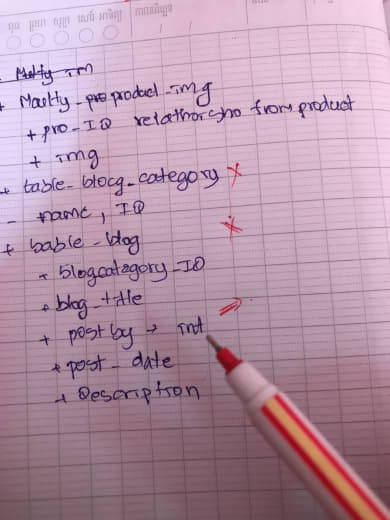 + Maulty_product_img
+ pro_ID relathorsho from product
+ img
+ table_blocg_category x
- name, ID
+ bable_blog x
+ blogcategory_ID
+ blog_title
+ post by → int ⇒
+ post_date
+ Description